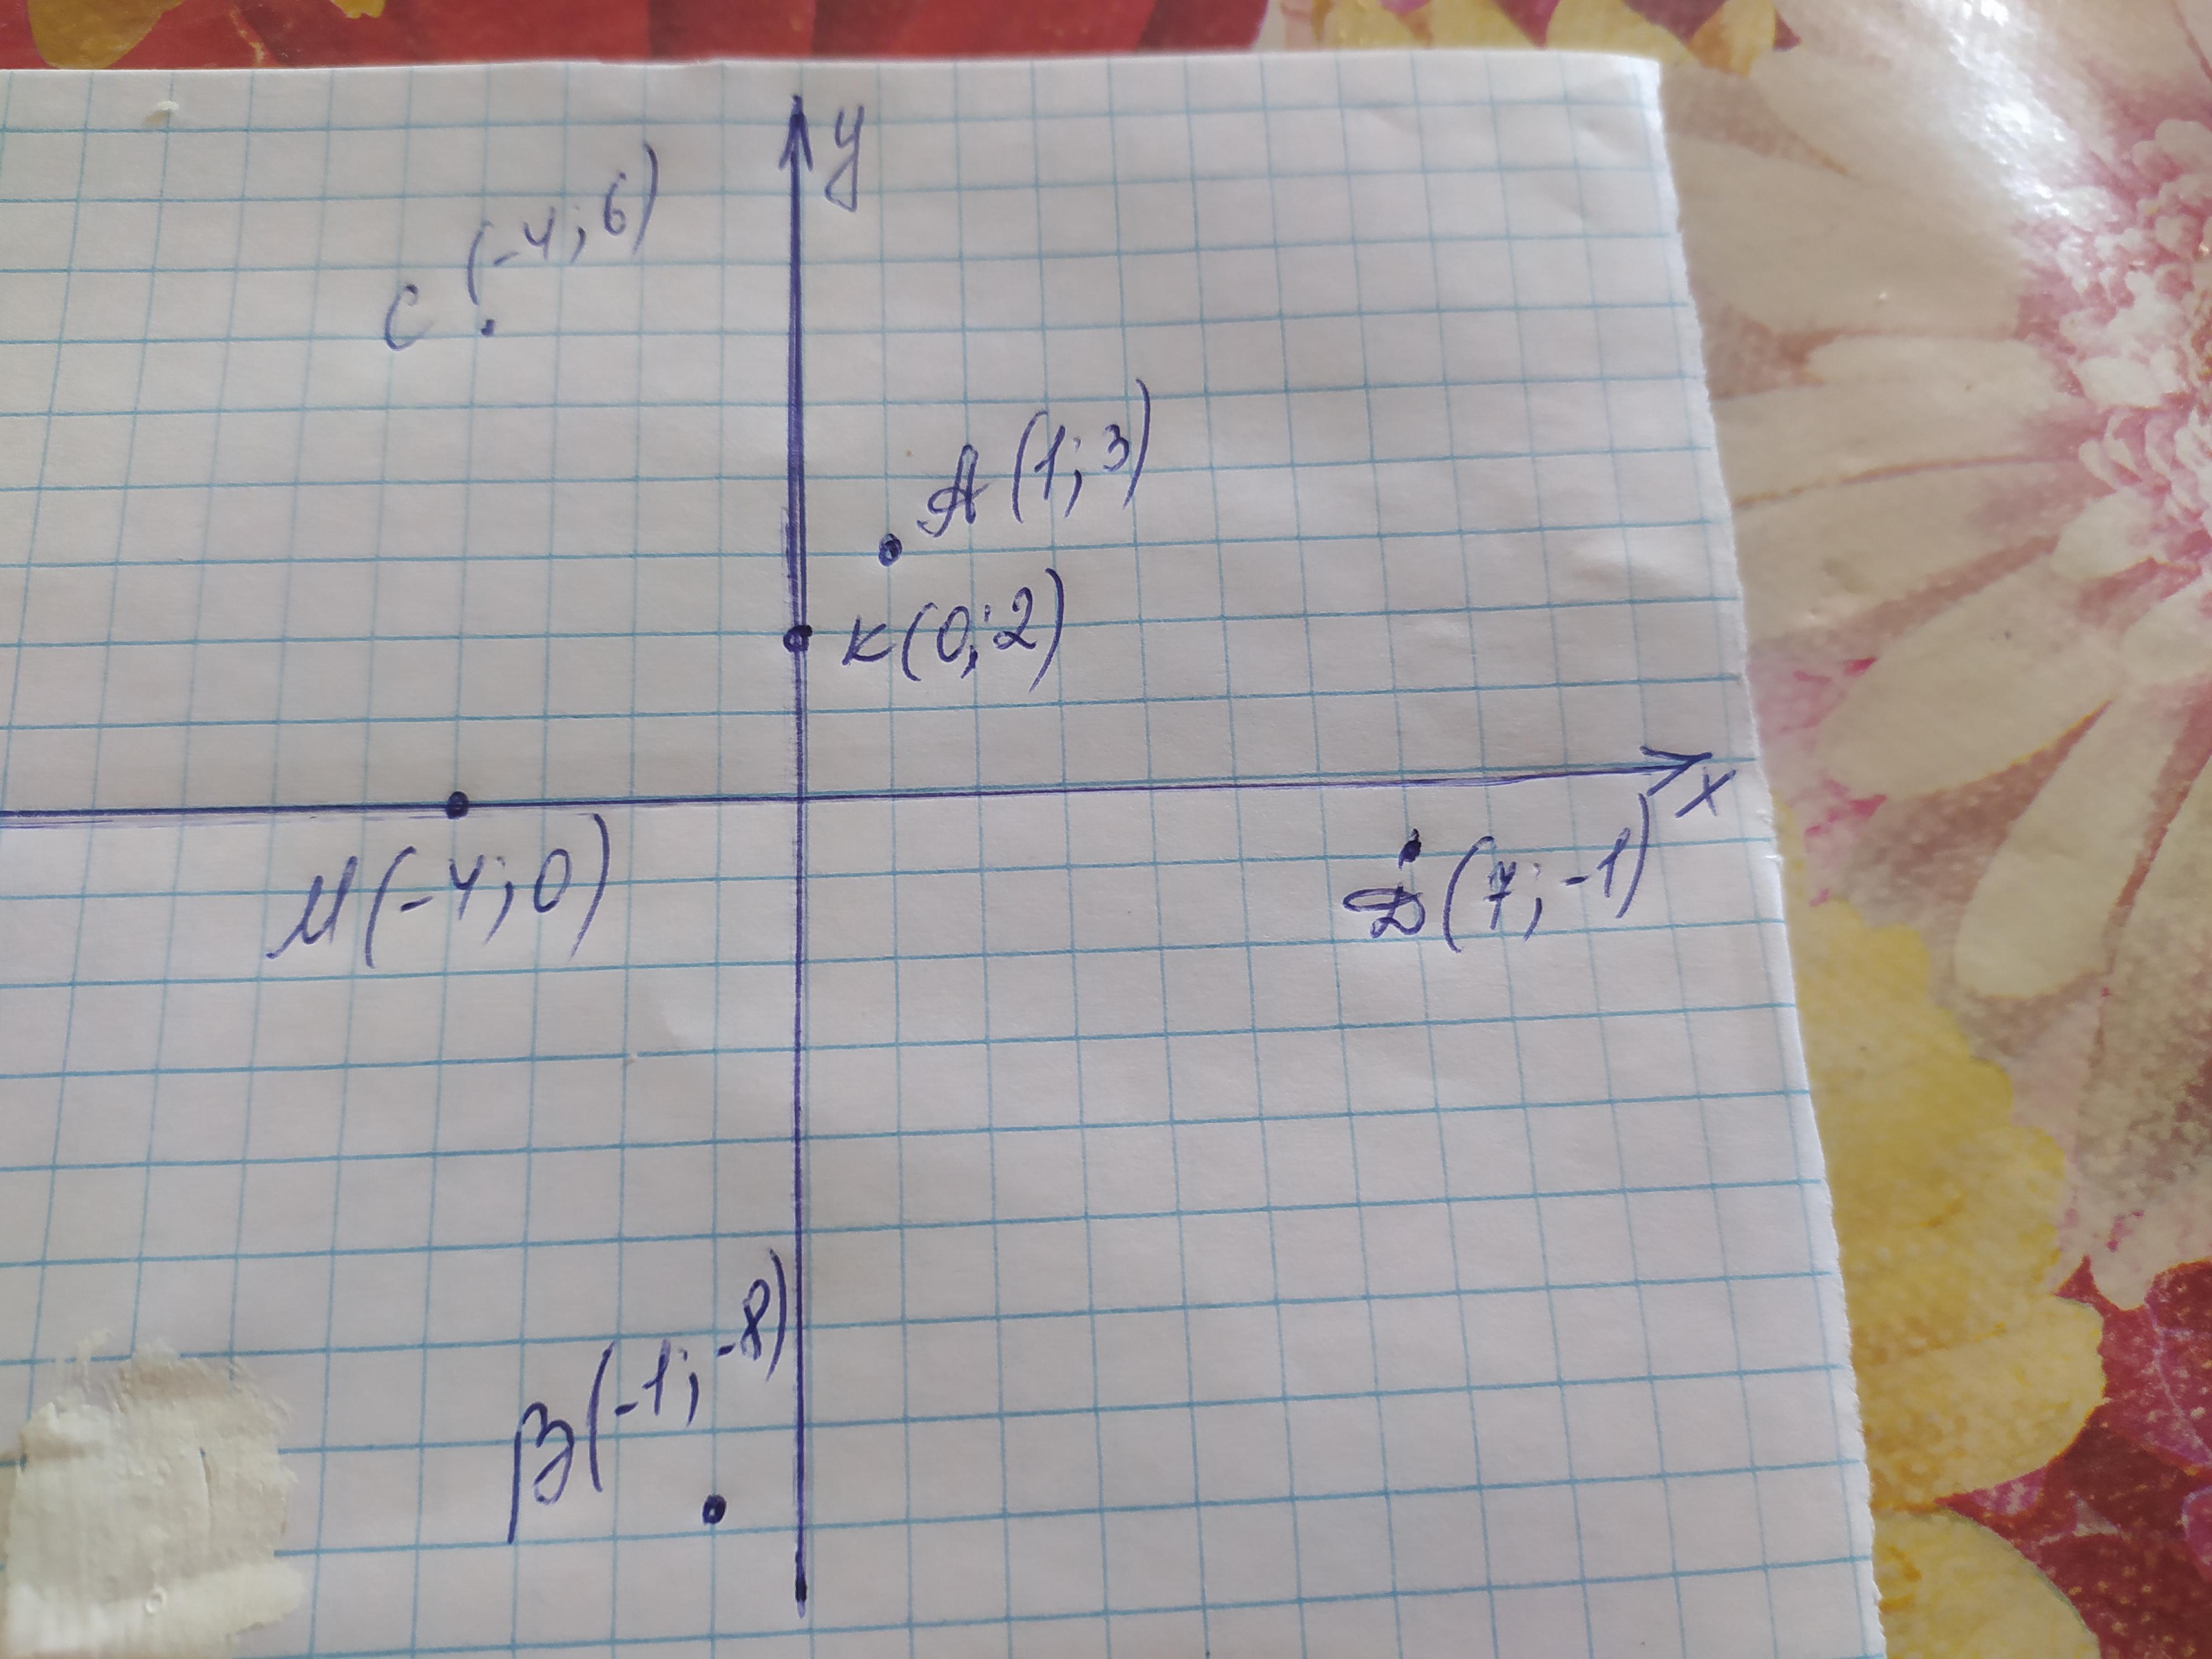 у
С (-4; 6)
А (1; 3)
К (0; 2)
х
М (-4; 0)
D (7; -1)
В (-1; -8)